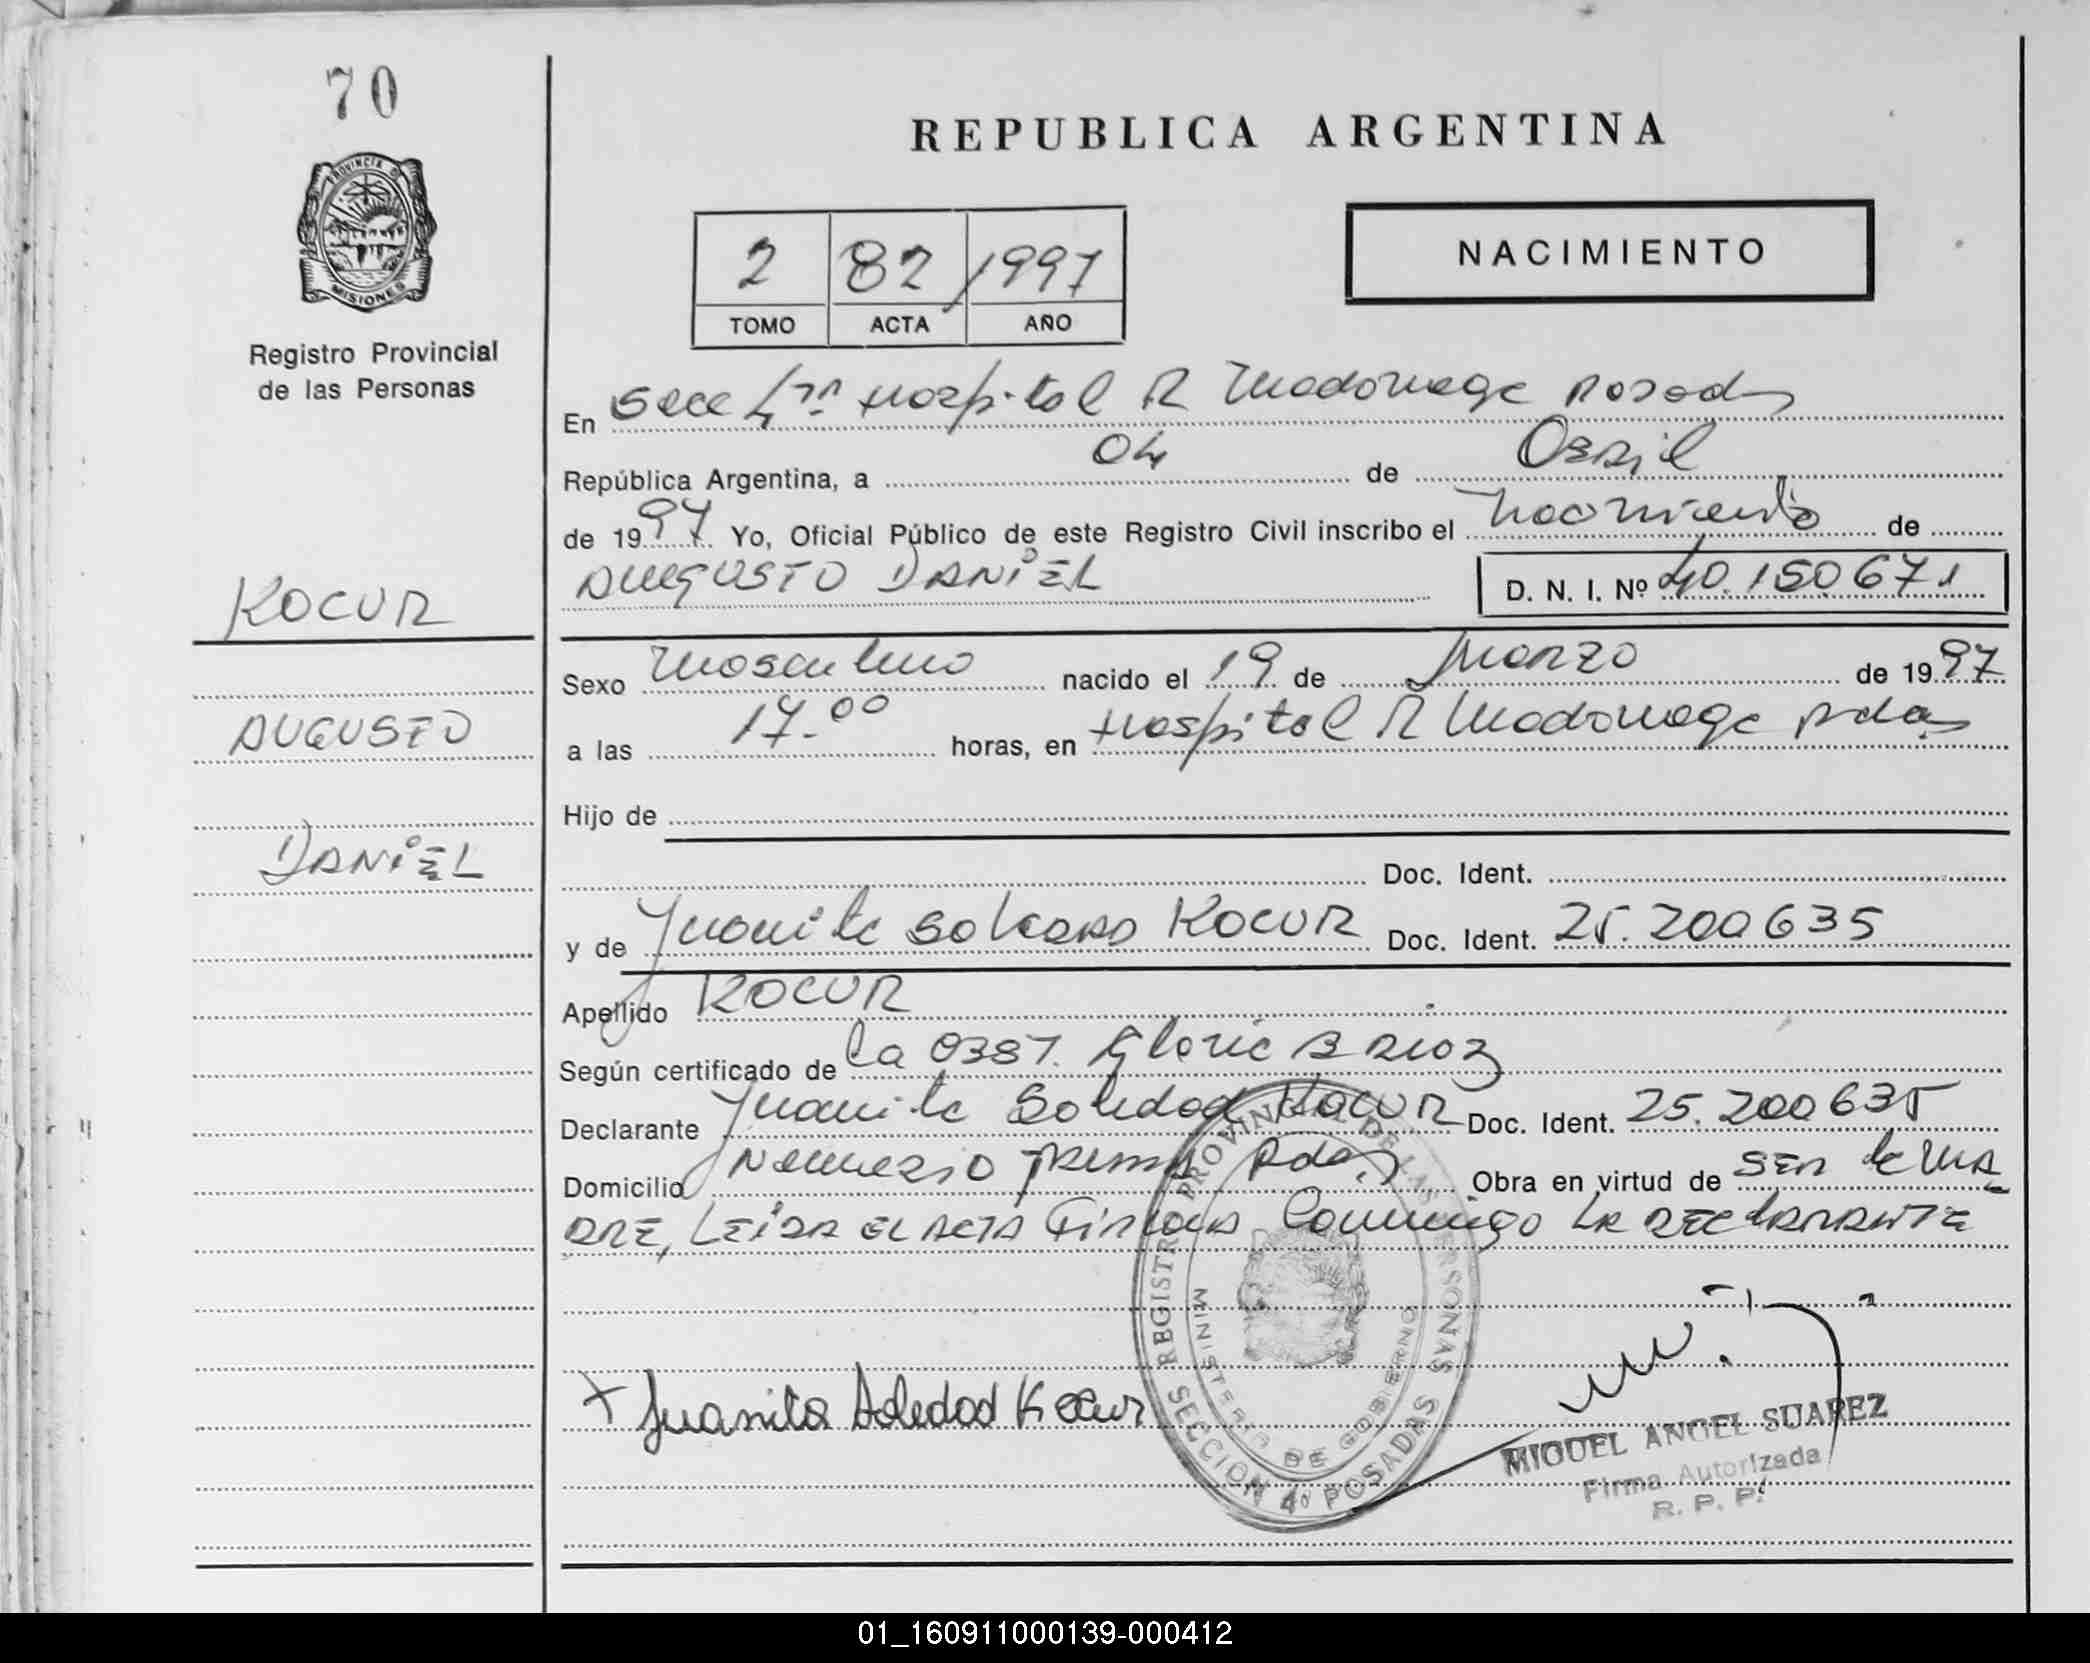 70
PROVINCIA DE
MISIONES
Registro Provincial
de las Personas
KOCUR
AUGUSTO
DANiEL
REPUBLICA ARGENTINA
2 82 / 1997
TOMO ACTA AÑO
NACIMIENTO
En Secc 4ta Hospital R Madariaga Posadas
República Argentina, a 04 de Abril
de 1997 Yo, Oficial Público de este Registro Civil inscribo el Nacimiento de
AUGUSTO DANiEL D. N. I. Nº 40.150.671
Sexo Masculino nacido el 19 de Marzo de 1997
a las 17.00 horas, en Hospital R Madariaga Pdas
Hijo de
Doc. Ident.
y de Juanita Soledad KOCUR Doc. Ident. 25.200635
Apellido KOCUR
Según certificado de la OBST. Gloria
Declarante Juanita Soledad Kocur Doc. Ident. 25.200635
Domicilio Pdas Obra en virtud de SER la MA
DRE, LEiDA EL ACTA FiRMA Conmigo LA DECLARANTE
REGISTRO PROVINCIAL DE LAS PERSONAS
MINISTERIO DE GOBIERNO
SECCION 4º POSADAS
x Juanita Soledad Kocur
MIGUEL ANGEL SUAREZ
Firma Autorizada
R. P. P.
01_160911000139-000412